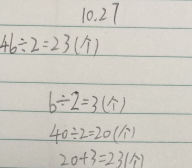 10.27
46÷2=23(个)
6÷2=3(个)
40÷2=20(个)
20+3=23(个)